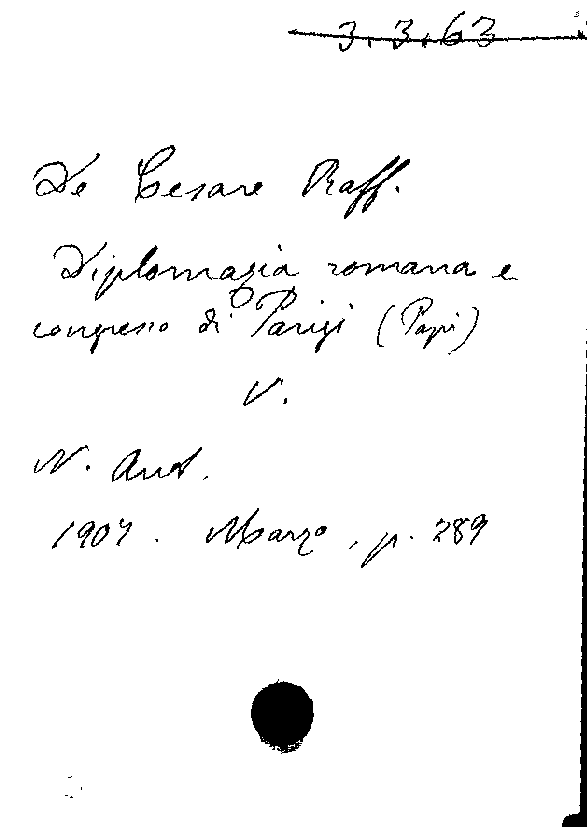 3.3.63
De Cesare Raff.
Diplomazia romana e
congresso di Parigi (Papi)
V.
N. Ant.
1907. Marzo, p. 289